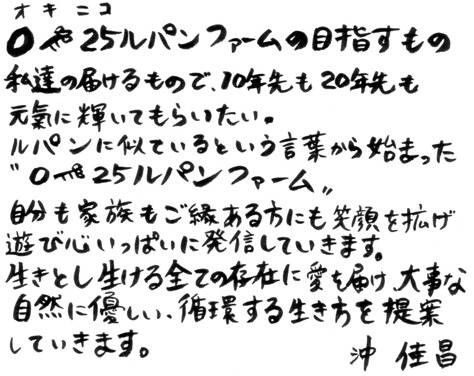 オキニコ
O 25ルパンファームの目指すもの
私達の届けるもので、10年先も20年先も
元氣に輝いてもらいたい。
ルパンに似ているという言葉から始まった
〝O 25ルパンファーム〟
自分も家族もご縁ある方にも笑顔を拡げ
遊び心いっぱいに発信していきます。
生きとし生ける全ての存在に愛を届け、大事な
自然に優しい、循環する生き方を提案
していきます。
沖 佳昌